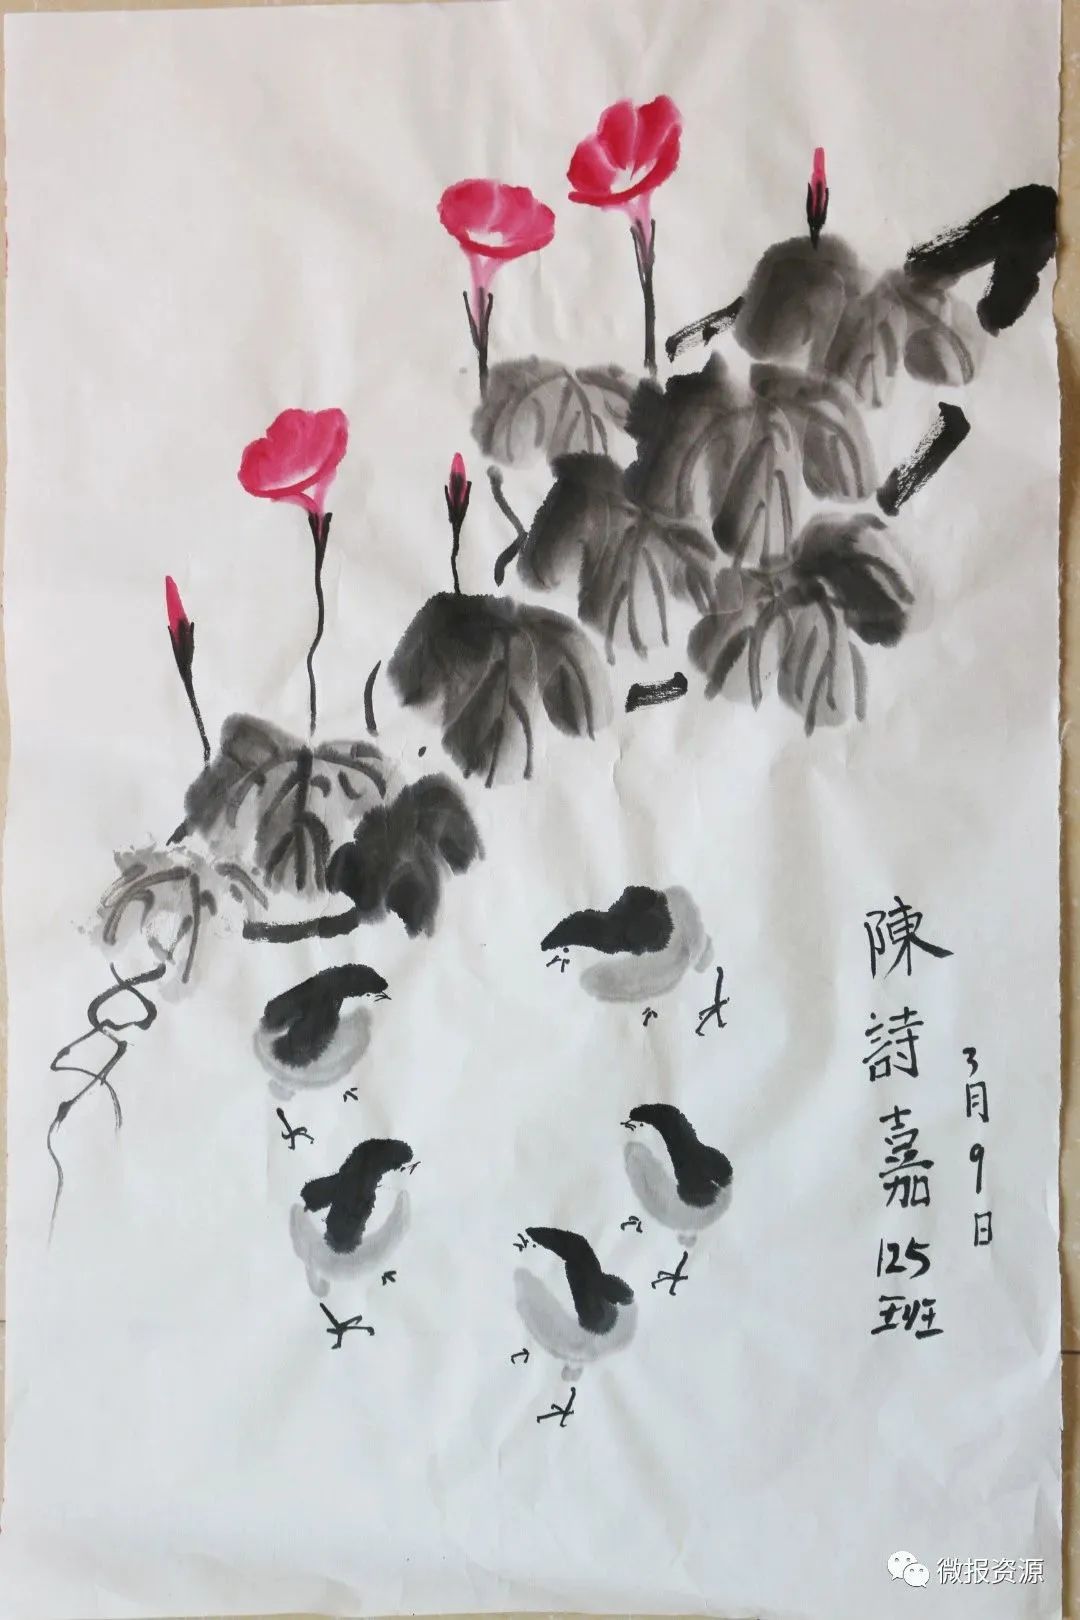 3月9日
陳詩嘉125班
微报资源